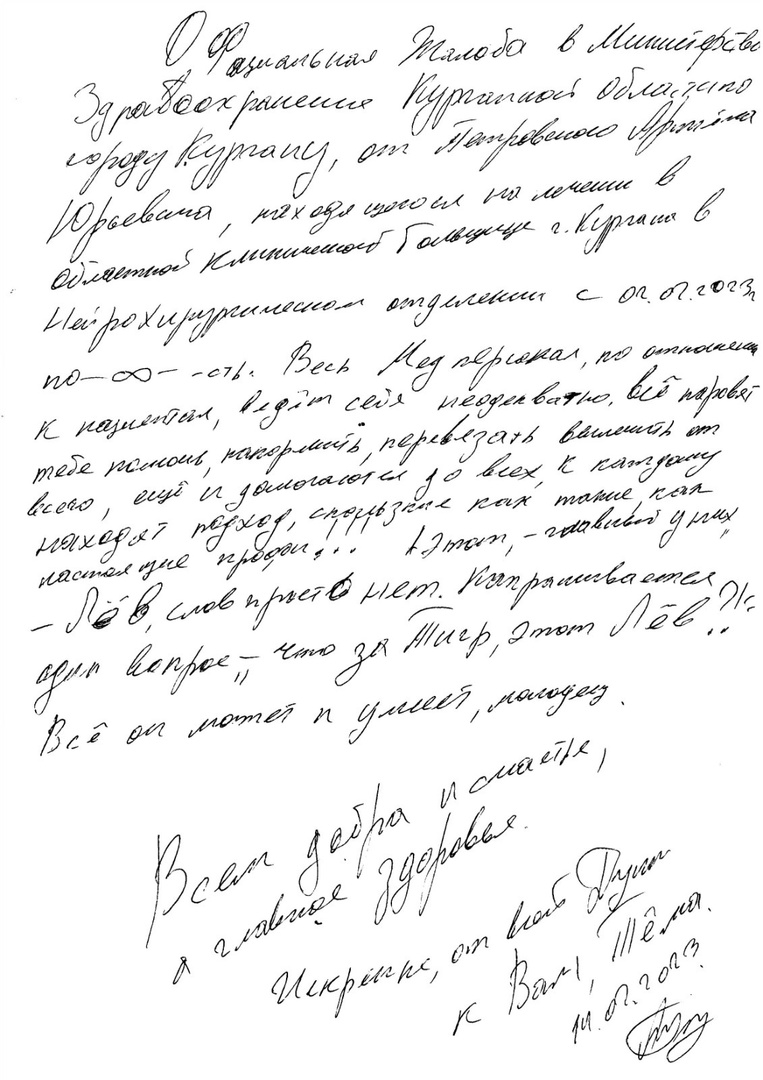 Официальная Жалоба в Министерство
Здравоохранения Курганской области по
городу Кургану, от Петровского Артёма
Юрьевича, находящегося на лечении в
областной клинической больнице г. Кургана в
Нейрохирургическом отделении с 02.02.2023г
по —∞— -сть. Весь Мед персонал, по отношению
к пациентам, ведёт себя неадекватно, всё норовят
тебе помочь, накормить, перевязать вылечить от
всего, ещё и домогаются до всех, к каждому
находят подход, скользкие как такие, как
настоящие профи!!! А этот, - главный у них
- Лёв, слов просто нет. Напрашивается
один вопрос - "Что за Тигр, этот Лёв?!"
Всё он может и умеет, молодец.
Всем добра и счастья,
а главное здоровья.
Искренне, от всей Души
к Вам, Тёма.
14.02.2023